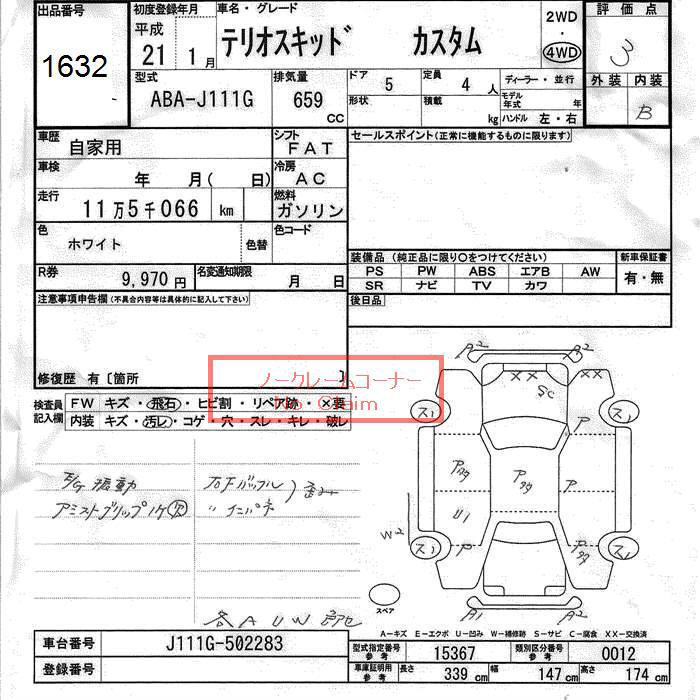 出品番号 初度登録年月 車名・グレード 2WD ・ 4WD 評価点
1632 平成 21 1月 テリオスキッド カスタム 3
型式 排気量 ドア 5 定員 4人 ディーラー・並行 外装 内装
ABA-J111G 659 CC 形状 積載 kg モデル年式 年 ハンドル 左・右 B
車歴 自家用 シフト FAT セールスポイント(正常に機能するものに限ります)
車検 年 月( 日) 冷房 AC
走行 11万5千066 km 燃料 ガソリン
色 ホワイト 色替 色コード
装備品 (純正品に限り○をつけてください) 新車保証書
R券 9,970円 名変通知期限 月 日 PS PW ABS エアB AW 有・無
SR ナビ TV カワ
注意事項申告欄(不具合内容等は具体的に記入して下さい) 後日品
修復歴 有〔箇所 〕
ノークレームコーナー
No Claim
検査員記入欄 FW キズ・飛石・ヒビ割・リペア跡・×要
内装 キズ・汚レ・コゲ・穴・スレ・キレ・破レ
A2 A2
×× ××
SC
ス1 ス1
P P
P P
U1
W2
ス1 P ス1
A1 A2
E/G 振動
スペア
各AUW
A-キズ E-エクボ U-凹み W-補修跡 S-サビ C-腐食 XX-交換済
車台番号 J111G-502283 型式指定番号 参考 15367 類別区分番号 参考 0012
登録番号 車庫証明用 参考 長さ 339 cm 幅 147 cm 高さ 174 cm